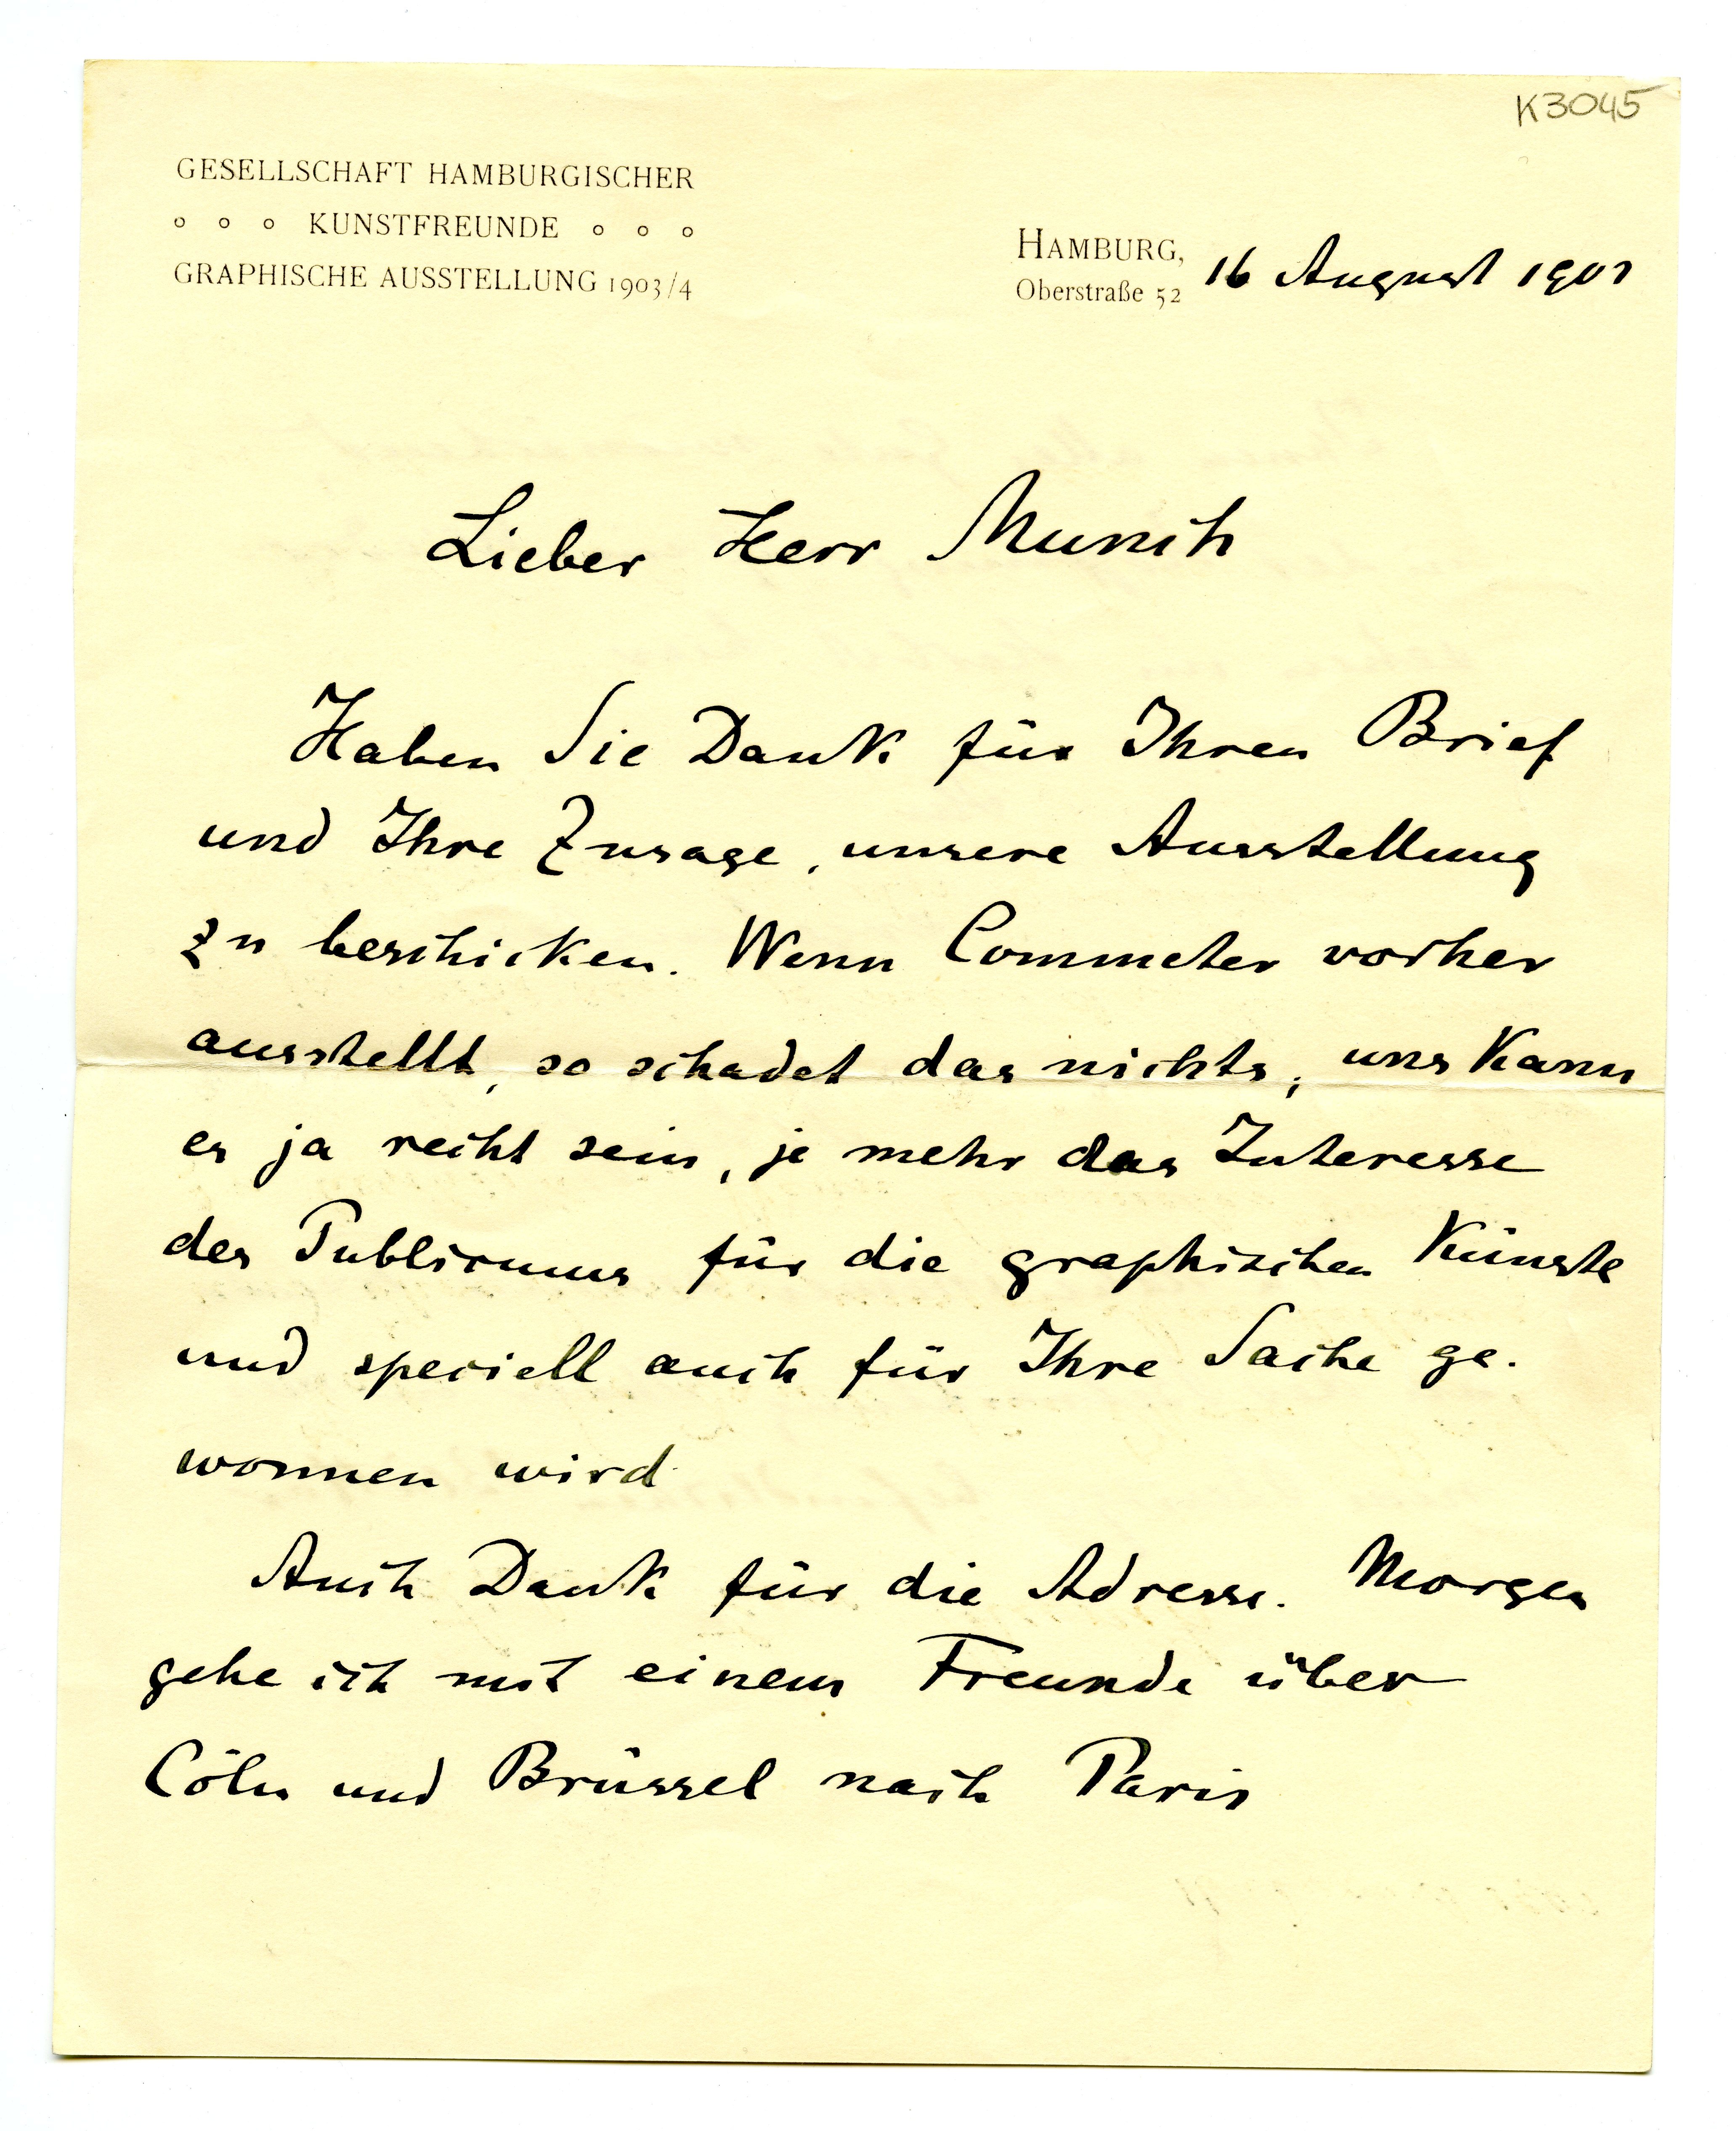 K3045
GESELLSCHAFT HAMBURGISCHER
KUNSTFREUNDE
GRAPHISCHE AUSSTELLUNG 1903/4
HAMBURG,
Oberstraße 52
16 August 1903
Lieber Herr Munch
Haben Sie Dank für Ihren Brief
und Ihre Zusage, unsere Ausstellung
zu beschicken. Wenn Commeter vorher
ausstellt, so schadet das nichts; uns kann
es ja recht sein, je mehr das Interesse
des Publicums für die graphischen Künste
und speciell auch für Ihre Sache ge-
wonnen wird.
Auch Dank für die Adresse. Morgen
gehe ich mit einem Freunde über
Cöln und Brüssel nach Paris